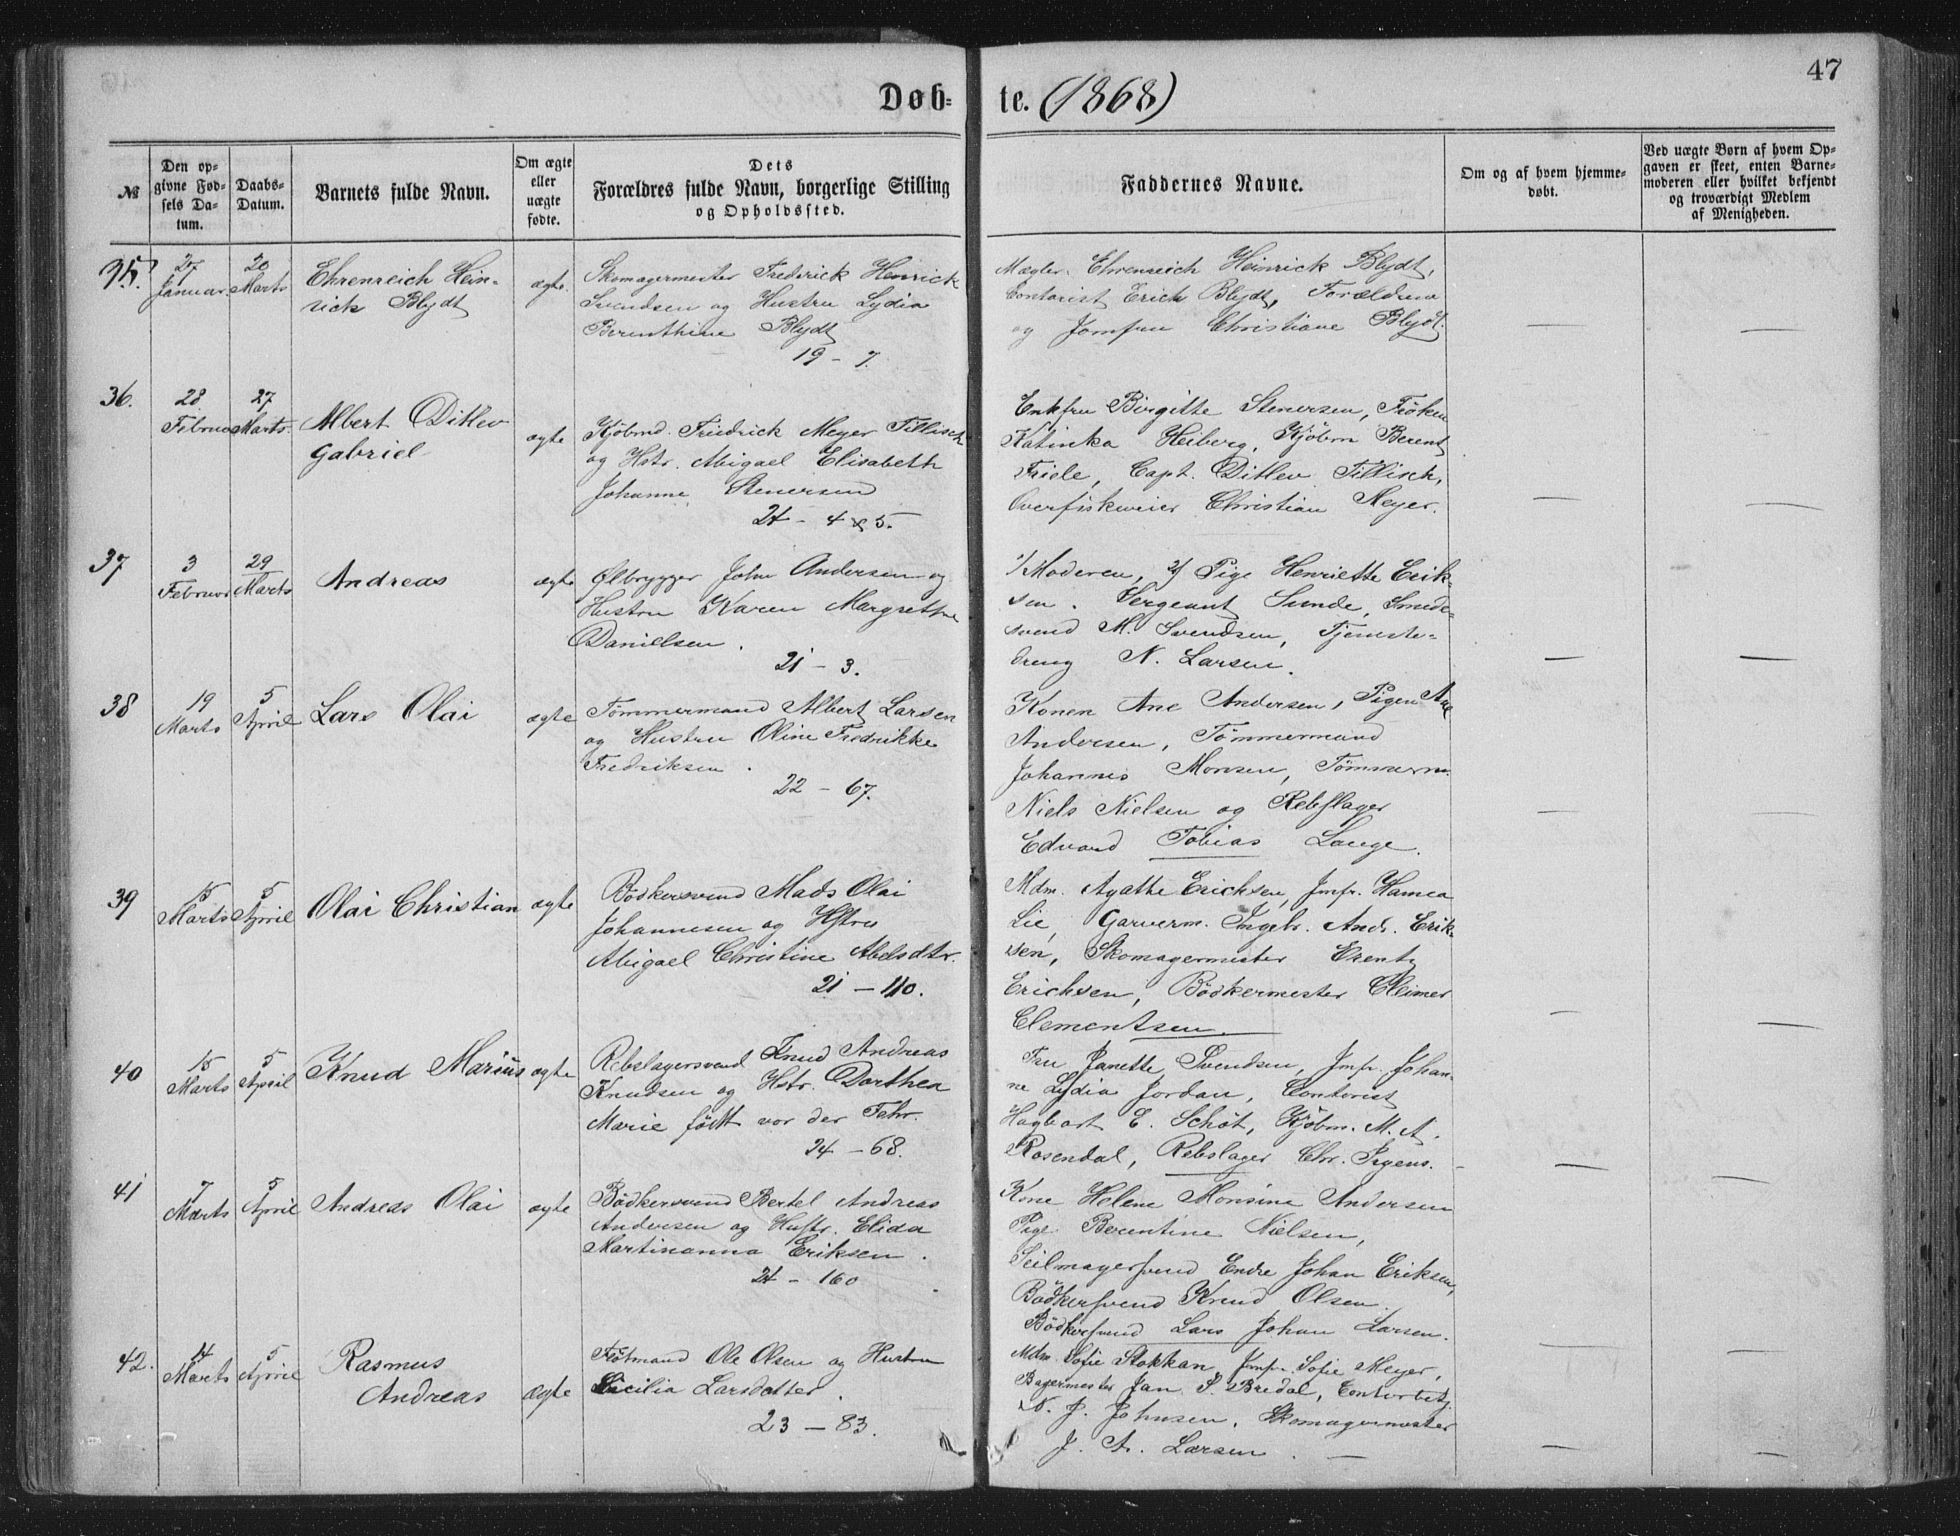 47
Døb- te. (1868)
№
Den op-
givne Fød-
sels Da-
tum.
Daabs-
Datum.
Barnets fulde Navn.
Om ægte
eller
uægte
fødte.
Dets
Forældres fulde Navn, borgerlige Stilling
og Opholdssted.
Faddernes Navne.
Om og af hvem hjemme-
døbt.
Ved uægte Børn af hvem Op-
gaven er skeet, enten Barne-
moderen eller hvilket bekjendt
og troværdigt Medlem
af Menigheden.
35.
27
Januar.
20
Marts
Ehrenreich Hein-
rich Blydt
ægte.
Skomagermester Frederick Henrick
Svendsen og Hustru Lydia
Berenthine Blydt
19 - 7.
Mægler Ehrenreich Heinrick Blydt,
Contorist Erich Blydt, Forældrene
og Jomfru Christiane Blydt.
36.
28
Februar
27
Marts.
Albert Ditlev
Gabriel
ægte
Kjöbmd. Friedrick Meyer Tillisch
og Hstr. Abigael Elisabeth
Johanne Stenersen
24 - 4 & 5.
Enkfru Birgitte Stenersen, Fröken
Katinka Heiberg, Kjöbm Berent
Friele, Capt. Ditlev Tillisch,
Overfiskevrier Christian Meyer.
37
3
Februar
29
Marts
Andreas
ægte
Ølbrygger John Andersen og
Hustru Karen Margrethe
Daniellsen.
21 - 3.
1/ Moderen, 2/ Pige Henriette Erik-
sen. Sergeant Sunde, Smede-
svend M. Svendsen, Tjeneste-
dreng N. Larsen.
38
19
Marts
5
April
Lars Olai
ægte
Tömmermand Albert Larsen
og Hustru Oline Fredrikke
Fredriksen.
22 - 67.
Konen Ane Andersen, Pigen Ane
Andersen, Tömmermand
Johannes Monsen, Tömmerm.
Niels Nielsen og Rebslager
Edvard Tobias Lange.
39
15
Marts
5
April
Olai Christian
ægte
Bödkersvend Mads Olai
Johannesen og Hstru
Abigael Christine Abelsdtr.
21 - 110.
Mdm. Agathe Erichsen, Jmfr. Hanna
Lie, Garverm. Ingebr. Andr. Erik-
sen, Skomagermester Erentz
Erichsen, Bödkermester Cleimer
Clementsen.
40
15
Marts
5
April
Knud Marius
ægte
Rebslagersvend Knud Andreas
Knudsen og Hstr. Dorthea
Marie födt vor der Fehr.
24 - 68.
Fru Janette Svendsen, Jmfr. Johan-
ne Lydia Jordan, Contorist
Hagbart E. Schöt, Kjöbm. M. A.
Rosendal, Rebslager Chr. Irgens.
41
7
Marts
5
April
Andreas Olai
ægte
Bödkersvend Bertel Andreas
Andersen og Hustr. Elida
Martinanna Eriksen.
24 - 160
Kone Helene Monsine Andersen
Pige Berentine Nielsen,
Seilmagersvend Endre Johan Eriksen,
Bödkersvend Knud Olsen,
Bödkersvend Lars Johan Larsen.
42.
14
Marts
5
April
Rasmus
Andreas
ægte
Fötmand Ole Olsen og Hustru
Sicilia Larsdatter.
23 - 83.
Mdm. Sofie Stokkan, Jmfr. Sofie Meyer,
Bagermester Jan S. Bredal, Contorbetj.
N. J. Johnsen, Skomagermester
J. A. Larsen.